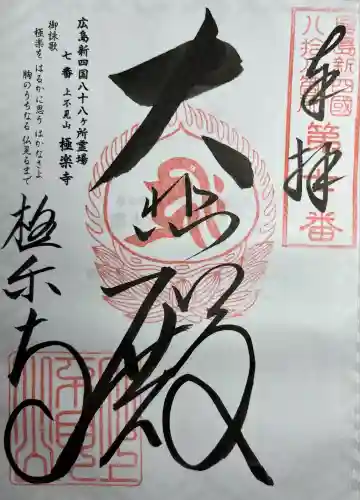 奉拝
広島新四国八十八ヶ所霊場
第七番
大悲殿
広島新四国八十八ヶ所霊場
七番 上不見山 極楽寺
御詠歌
極楽を はるかに思う はかなさよ
胸のうちなる 仏見るまで
極楽寺